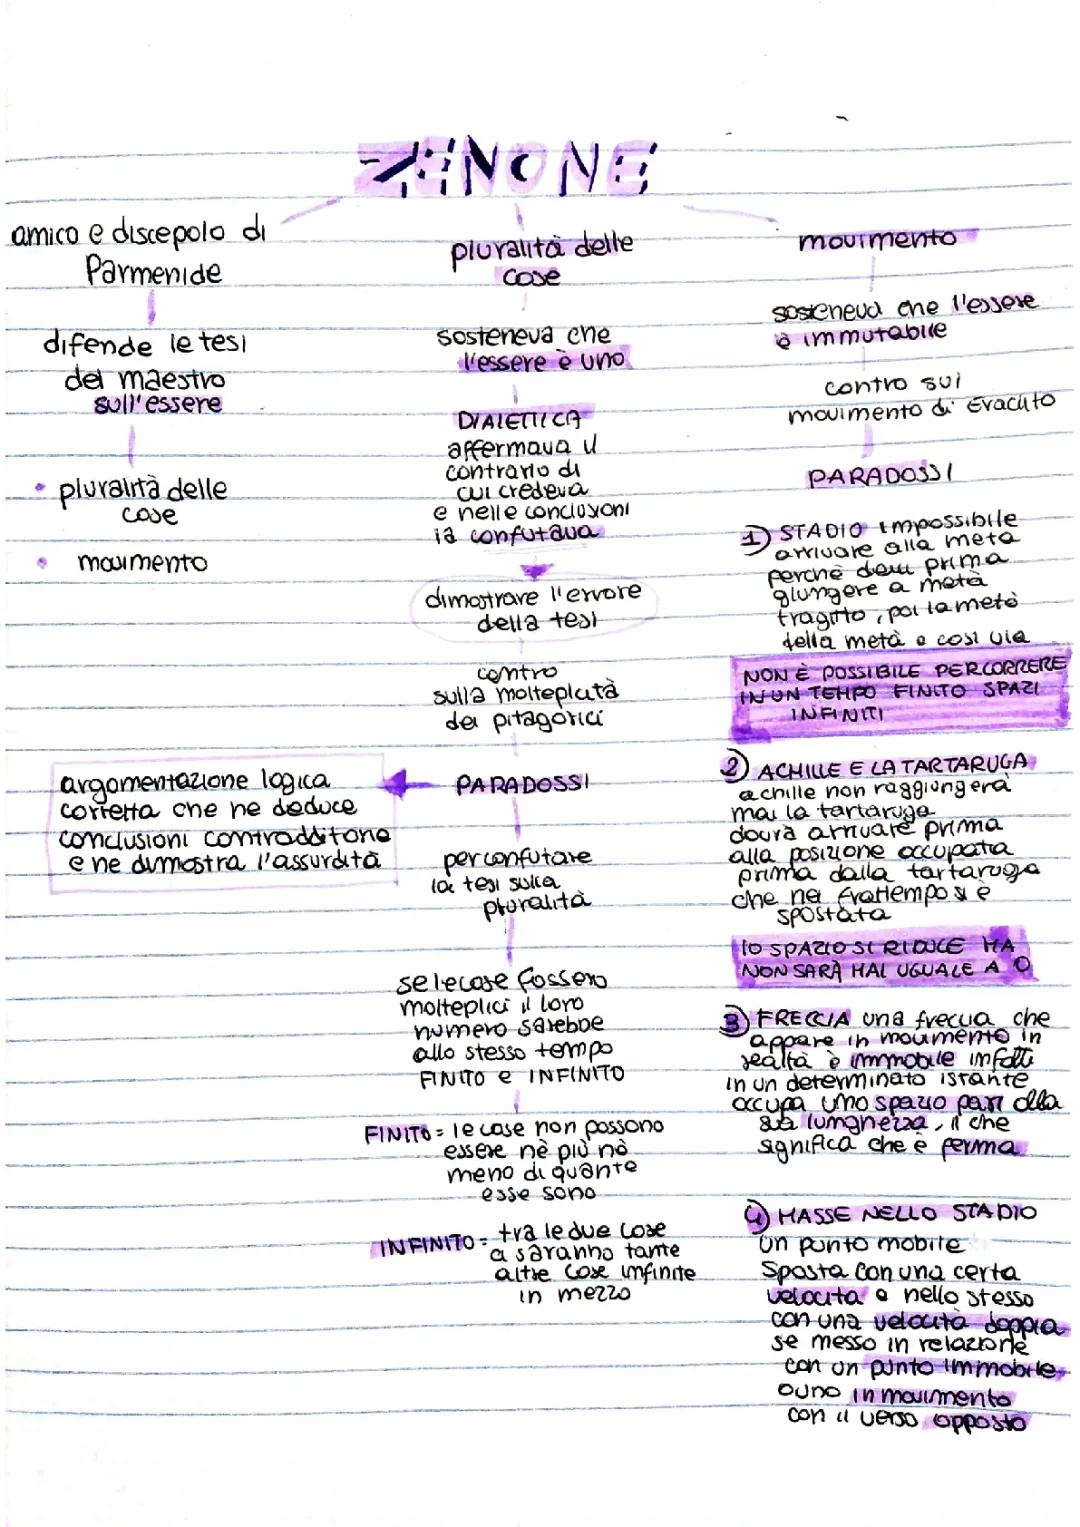 ZENONE
amico e discepolo di
Parmenide
difende le tesi
del maestro
sull'essere
• pluralità delle
cose
• movimento
pluralità delle
cose
sosteneva che
l'essere è uno
DIALETTICA
affermava il
contrario di
cui credeva
e nelle conclusioni
la confutava
dimostrare l'errore
della tesi
contro
sulla molteplicità
dei pitagorici
PARADOSSI
argomentazione logica
corretta che ne deduce
conclusioni contraddittorie
e ne dimostra l'assurdità
per confutare
la tesi sulla
pluralità
se le cose fossero
molteplici il loro
numero sarebbe
allo stesso tempo
FINITO e INFINITO
FINITO = le cose non possono
essere nè più nè
meno di quante
esse sono
INFINITO = tra le due cose
ci saranno tante
altre cose infinite
in mezzo
movimento
sosteneva che l'essere
è immutabile
contro sul
movimento di Eraclito
PARADOSSI
1) STADIO impossibile
arrivare alla meta
perchè devi prima
giungere a metà
tragitto, poi la metà
della metà e così via
NON È POSSIBILE PERCORRERE
IN UN TEMPO FINITO SPAZI
INFINITI
2) ACHILLE E LA TARTARUGA
achille non raggiungerà
mai la tartaruga
dovrà arrivare prima
alla posizione occupata
prima dalla tartaruga
che nel frattempo si è
spostata
lo SPAZIO SI RIDUCE MA
NON SARÀ MAI UGUALE A 0
3) FRECCIA una freccia che
appare in movimento in
realtà è immobile infatti
in un determinato istante
occupa uno spazio pari alla
sua lunghezza, il che
significa che è ferma
4) MASSE NELLO STADIO
un punto mobile
sposta con una certa
velocità e nello stesso
con una velocità doppia
se messo in relazione
con un punto immobile
o uno in movimento
con il verso opposto